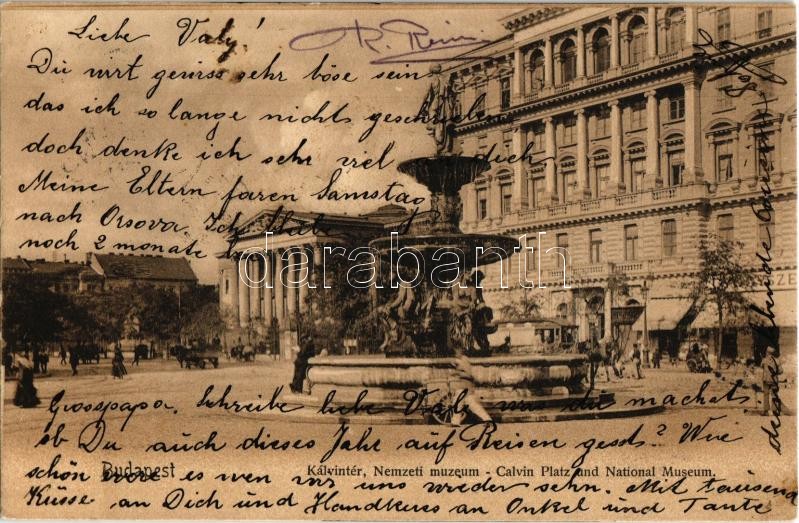 Liebe Valy!
Du wirt gewiss sehr böse sein
das ich so lange nichts geschrieben
doch denke ich sehr viel an dich
Meine Eltern faren Samstag
nach Orsova. Ich bleibe
noch 2 monate
darabanth.com
Grosspapa. Schreibe liebe Valy was du machst
ob Du auch dieses Jahr auf Reisen gesst? Wie
schön wore es wen wir uns wieder sehn. Mit tausend
Budapest
Kálvintér, Nemzeti muzeum - Calvin Platz and National Museum.
Küsse an Dich und Handkuss an Onkel und Tante